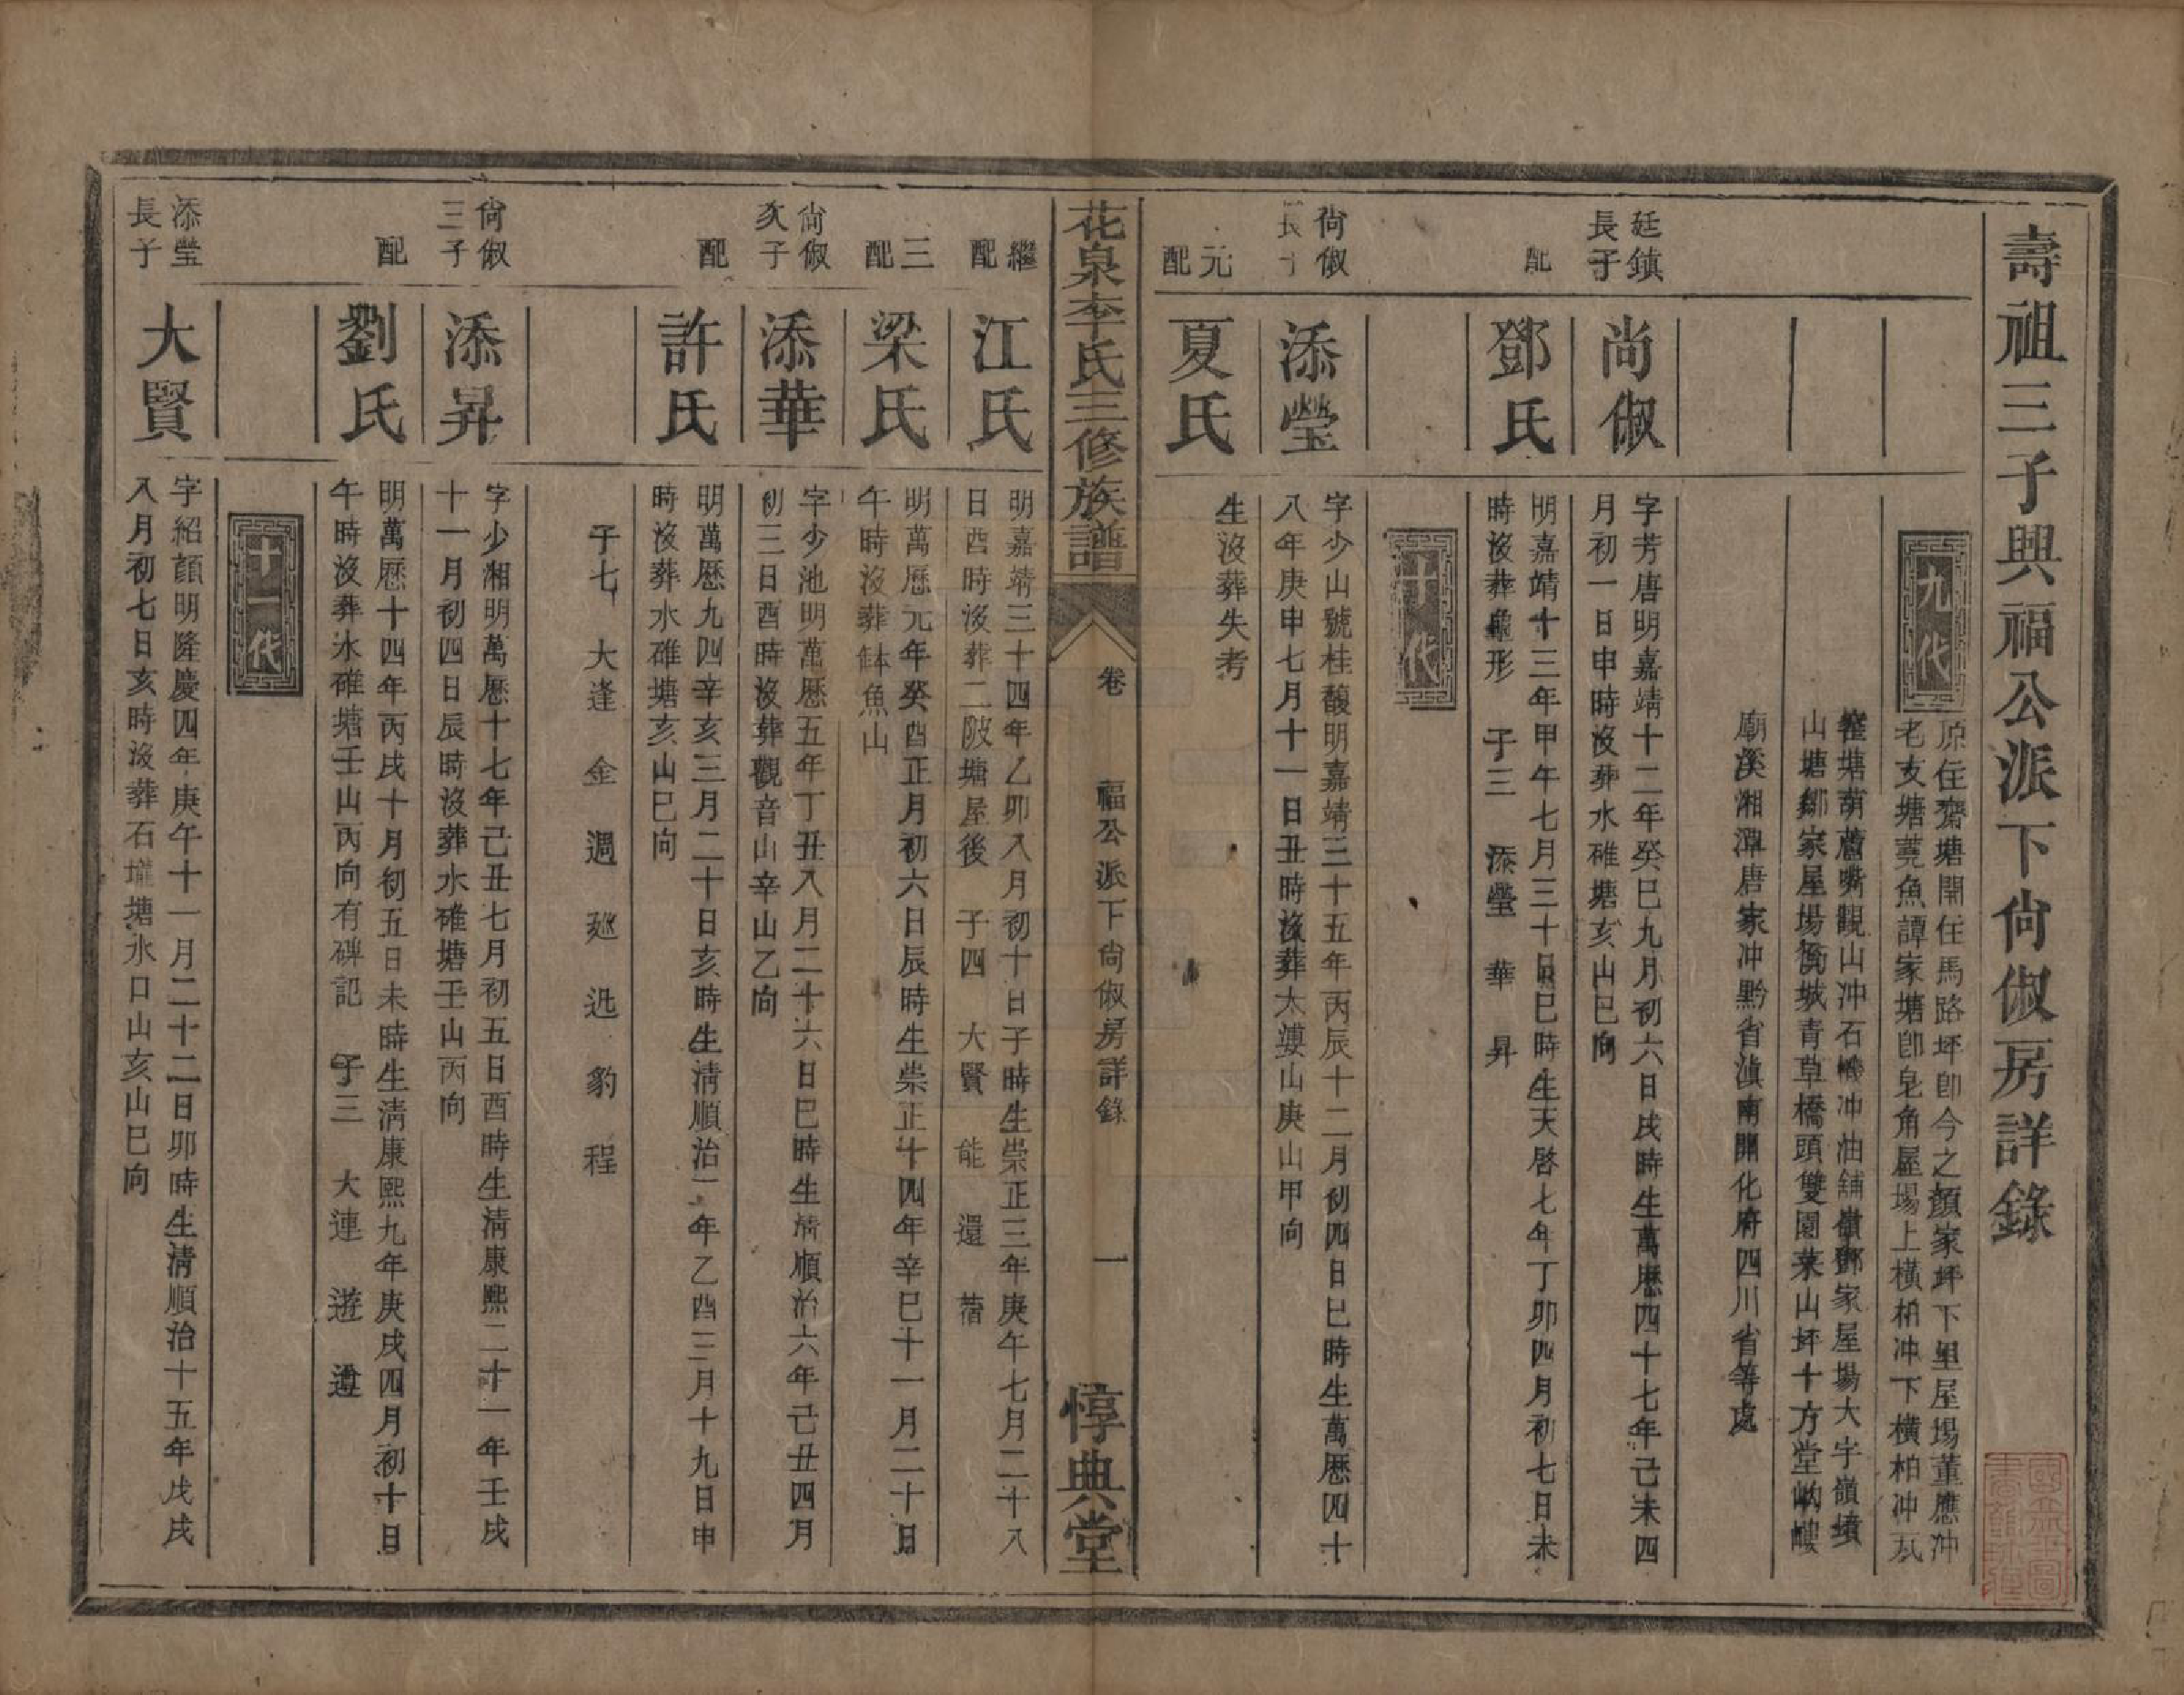 壽祖三子興福公派下尙俶房詳錄
九代
原住齋塘開住馬路坪卽今之顏家坪下里屋場董應冲
老支塘蕘魚譚家塘卽皂角屋場上橫柏冲下橫柏冲瓦
窰塘葫蘆嘴觀山冲石磯冲油舖嶺鄧家屋場大字嶺墳
山塘鄒家屋場衡城青草橋頭雙園菜山坪十方堂岣嶁
廟溪湘潭唐家冲黔省滇南開化府四川省等處
廷鎮
長子
尚俶
字芳唐明嘉靖十二年癸巳九月初六日戌時生萬厯四十七年己未四
月初一日申時沒葬水碓塘亥山巳向
配
鄧氏
明嘉靖十三年甲午七月三十日巳時生天啓七年丁卯四月初七日未
時沒葬龜形 子三 添瑩 華 昇
十代
尙俶
長子
添瑩
字少山號桂馥明嘉靖三十五年丙辰十二月初四日巳時生萬厯四十
八年庚申七月十一日丑時沒葬太婆山庚山甲向
元
配
夏氏
生沒葬失考
花泉李氏三修族譜
卷
福公派下尙俶房詳錄
一
惇典堂
繼
配
江氏
明嘉靖三十四年乙卯八月初十日子時生崇正三年庚午七月二十八
日酉時沒葬二陂塘屋後 子四 大賢 能 還
三
配
梁氏
明萬厯元年癸酉正月初六日辰時生崇正十四年辛巳十一月二十日
午時沒葬鉢魚山
尙俶
次子
添華
字少池明萬厯五年丁丑八月二十六日巳時生淸順治六年己丑四月
初三日酉時沒葬觀音山辛山乙向
配
許氏
明萬厯九四辛亥三月二十日亥時生淸順治二年乙酉三月十九日申
時沒葬水碓塘亥山巳向
子七 大逢 金 週 迯 迅 豹 程
尙俶
三子
添昇
字少湘明萬厯十七年己丑七月初五日酉時生淸康熙二十一年壬戌
十一月初四日辰時沒葬水碓塘壬山丙向
配
劉氏
明萬厯十四年丙戌十月初五日未時生淸康熙九年庚戌四月初十日
午時沒葬水碓塘壬山丙向有碑記 子三 大連 遊 遵
十一代
添瑩
長子
大賢
字紹顏明隆慶四年庚午十一月二十二日卯時生淸順治十五年戊戌
八月初七日亥時沒葬石壠塘水口山亥山巳向